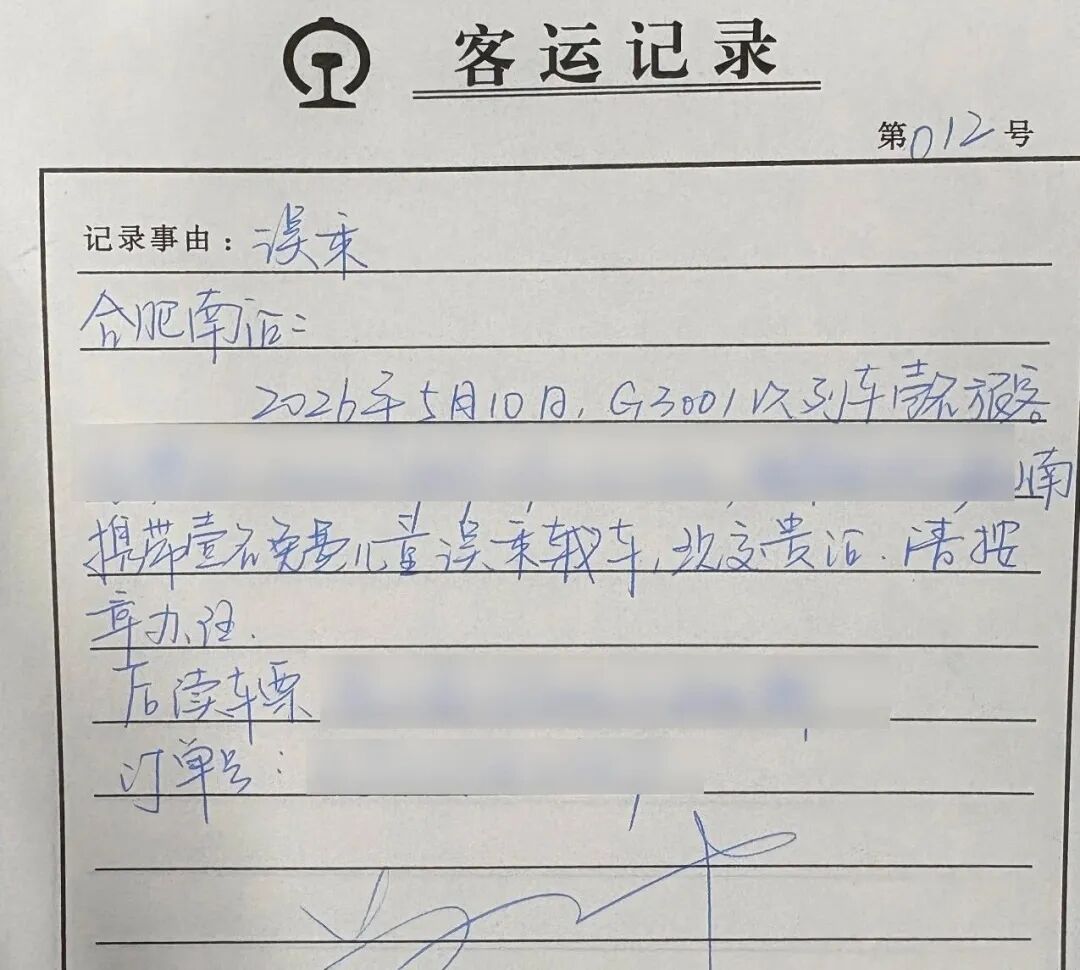 客运记录
第012号
记录事由：误乘
合肥南站：
2026年5月10日，G3001次列车壹名旅客
南
携带壹名免费儿童误乘我车，现交贵站.请按
章办理.
后续车票
订单号：